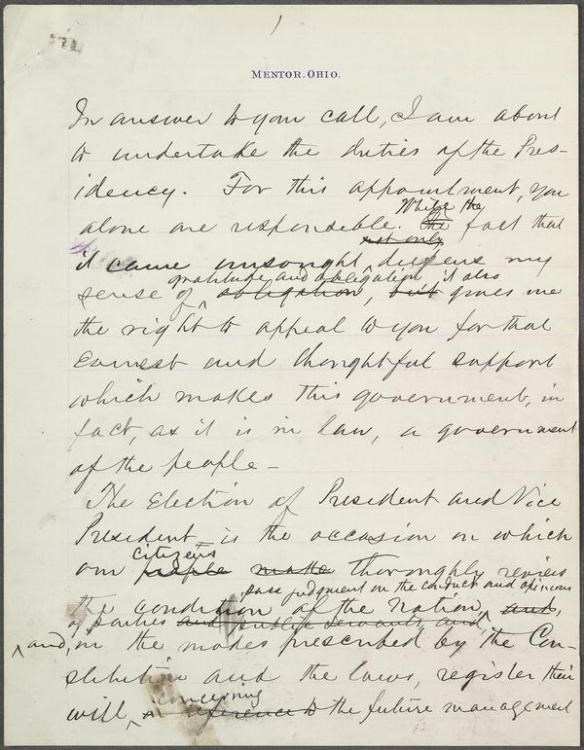 1
MENTOR, OHIO.
In answer to your call, I am about
to undertake the duties of the Pres-
idency. For this appointment, you
While the
alone are responsible. the fact that
not only
it came unsought, deepens my
gratitude and obligation, it also
sense of obligation, but gives me
the right to appeal to you for that
earnest and thoughtful support
which makes this government, in
fact, as it is in law, a government
of the people –
The Election of President and Vice
President, is the occasion on which
citizens
our people make thoroughly review
pass judgment on the conduct and opinions
the condition of the nation, and,
of parties and public servants, and
and, in the modes prescribed by the Con-
stitution and the laws, register their
concerning
will, in reference to the future management